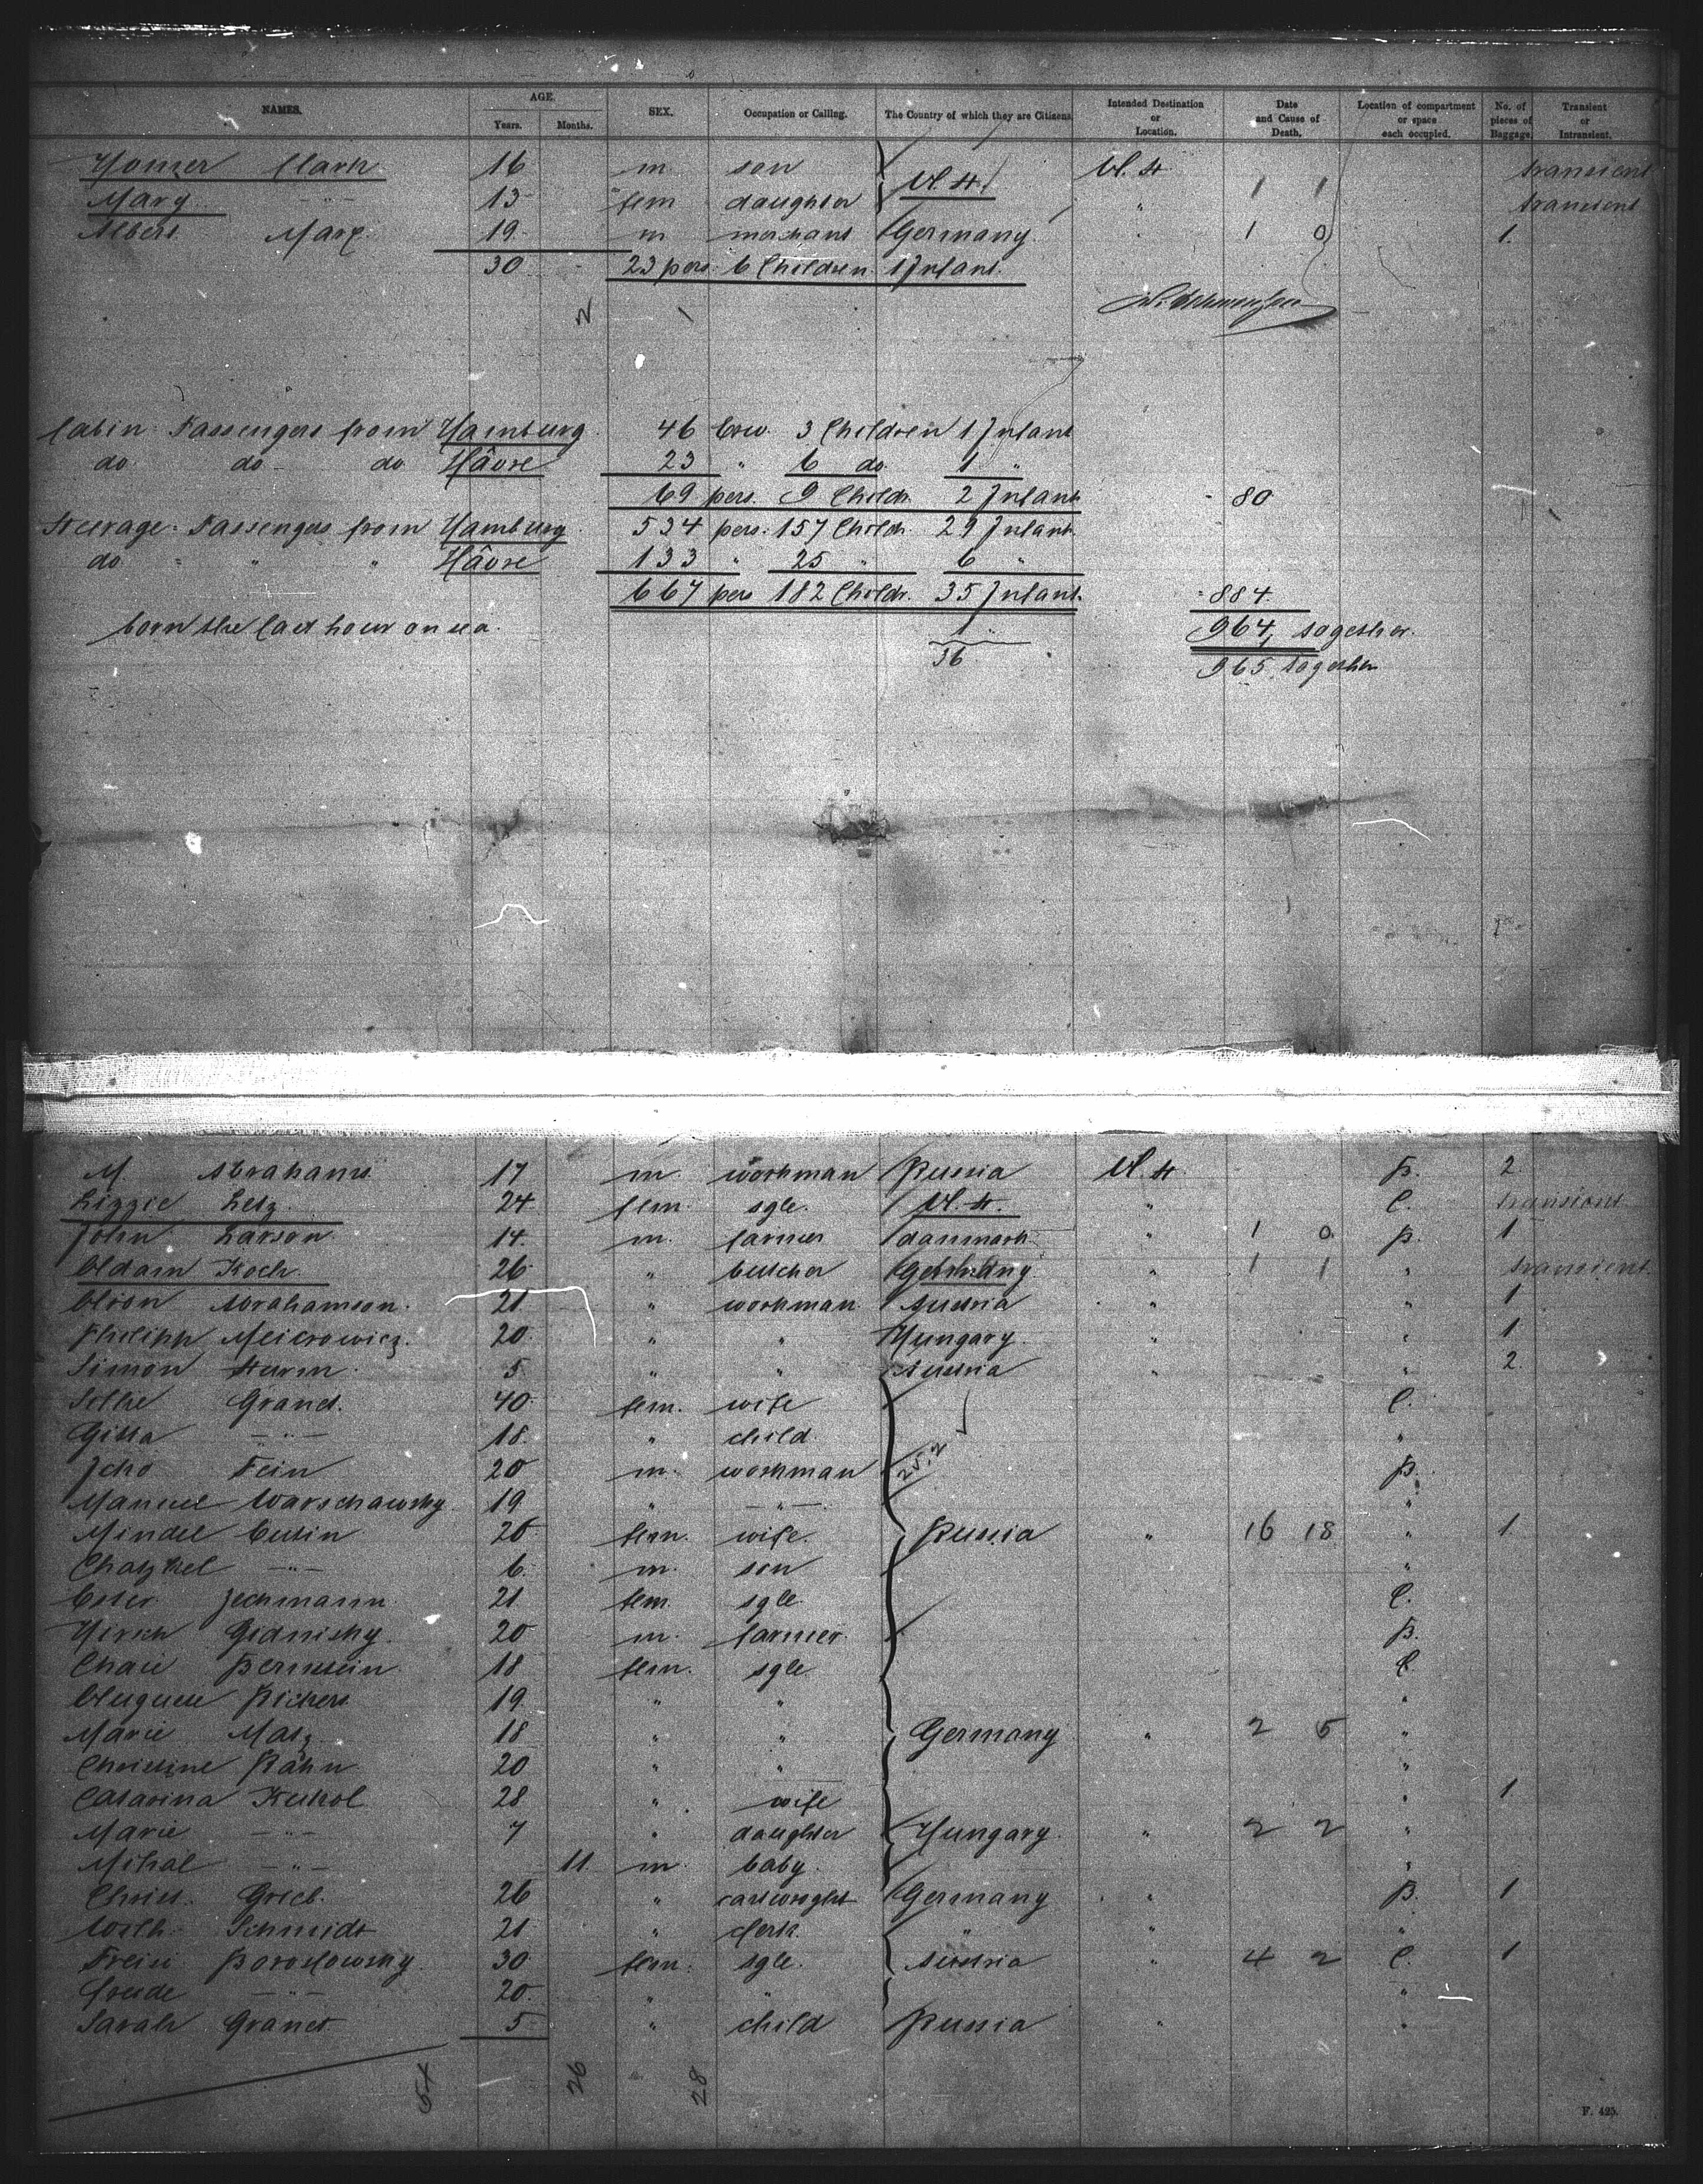 NAMES. AGE. Years. Months. SEX. Occupation or Calling. The Country of which they are Citizens. Intended Destination or Location. Date and Cause of Death. Location of compartment or space each occupied. No. of pieces of Baggage. Transient or Intransient.
Homer Clark 16 m son U. St. transient
Mary -"- 13 fem daughter U. St. " 1 1 transient
Albert Marx 19 m merchant Germany " 1 0 1.
30 23 pers. 6 Children 1 Infant.
2 1
Cabin Passengers from Hamburg. 46 3 Children 1 Infant
do do do Hâvre 23 " 6 do 1 "
69 pers. 9 Childr. 2 Infant. - 80
Steerage-Passengers from Hamburg. 534 pers. 157 Childr. 29 Infant.
do. " " " Hâvre 133 " 25 " 6 "
667 pers 182 Childr. 35 Infant. - 884.
born the last hour on sea. 1 " 964, together.
36 965 together
M. Abrahams 17 m. workman Russia U. St. B. 2
Lizzie Letz. 24 fem. sgle. U. St. " C. transient
John Larson 14. m. farmer danmark " 1 0. B. 1
Adam Koch. 26 " butcher Germany " 1 1 " transient.
Abrahamson. 21 " workman Austria " " 1
Philipp Meierowicz. 20 " " Hungary. " " 1
Simon Sturm 5 " " Austria " " 2.
Granet. 40 fem. wife C.
Gitta -"- 18. " child "
Fein 20 m. workman B.
Manuel Warschawsky. 19 " -"- "
Mindel 26 fem. wife. Russia " 16 18 " 1
Chatzkel -"- 6. m. son "
Ester Zechmann 21 fem. sgle. C.
Hirsch Gidnisky. 20 m. farmer. B.
Chaie Bernstein 18 fem. sgle C.
Auguste Richers 19. " " "
Marie Matz 18 " " Germany " 2 5 "
Christine Rähn 20 " " "
Catarina 28 " wife " 1
Marie -"- 7 " daughter Hungary. " 2 2 "
Mihal -"- 11. m. baby. "
Christ. Grieb. 26 " cartwright Germany " B. 1
Wilh. Schmidt 21 " clerk. " " "
30 fem. sgle. Austria " 4 2 C. 1
Freide -"- 20. " " "
Sarah Granet 5 " child Russia " "
64 26 28
F. 425.